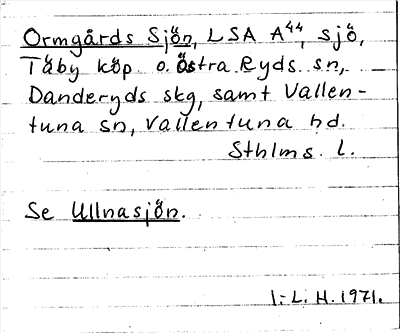 Ormgårds Sjön, LSA A44, sjö,
Täby köp o. Östra Ryds sn,
Danderyds skg, samt Vallen-
tuna sn, Vallentuna hd.
Sthlms l.
Se Ullnasjön.
I.L.H. 1971.